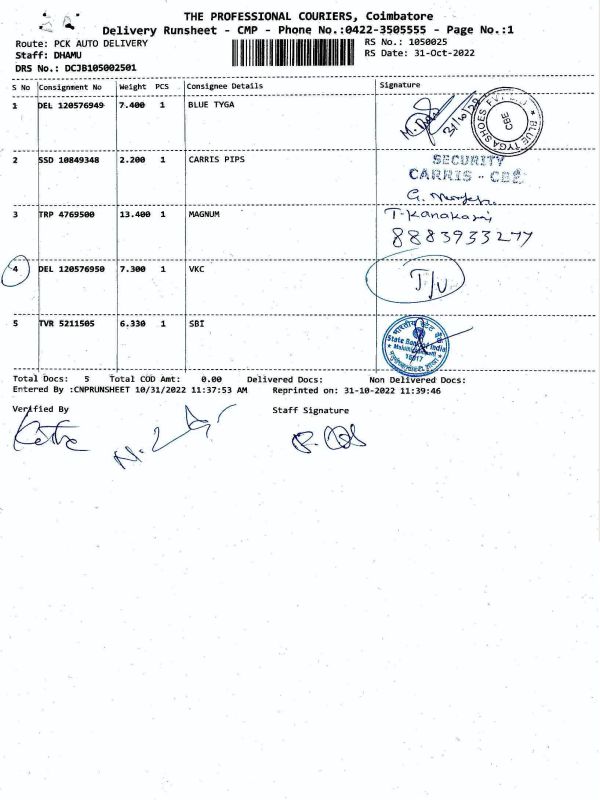 THE PROFESSIONAL COURIERS, Coimbatore
Delivery Runsheet - CMP - Phone No.:0422-3505555 - Page No.:1
Route: PCK AUTO DELIVERY
RS No.: 1050025
Staff: DHAMU
RS Date: 31-Oct-2022
DRS No.: DCJB105002501
S No Consignment No Weight PCS Consignee Details Signature
1 DEL 120576949 7.400 1 BLUE TYGA
31/10/22
BLUE TYGA SHOES PVT LTD
CBE
2 SSD 10849348 2.200 1 CARRIS PIPS
SECURITY
CARRIS - CBE
3 TRP 4769500 13.400 1 MAGNUM
T. Kanakamani
8883933277
4 DEL 120576950 7.300 1 VKC
T/U
5 TVR 5211505 6.330 1 SBI
भारतीय स्टेट बैंक
State Bank of India
Total Docs: 5 Total COD Amt: 0.00 Delivered Docs: Non Delivered Docs:
Entered By :CNPRUNSHEET 10/31/2022 11:37:53 AM Reprinted on: 31-10-2022 11:39:46
Verified By
Staff Signature